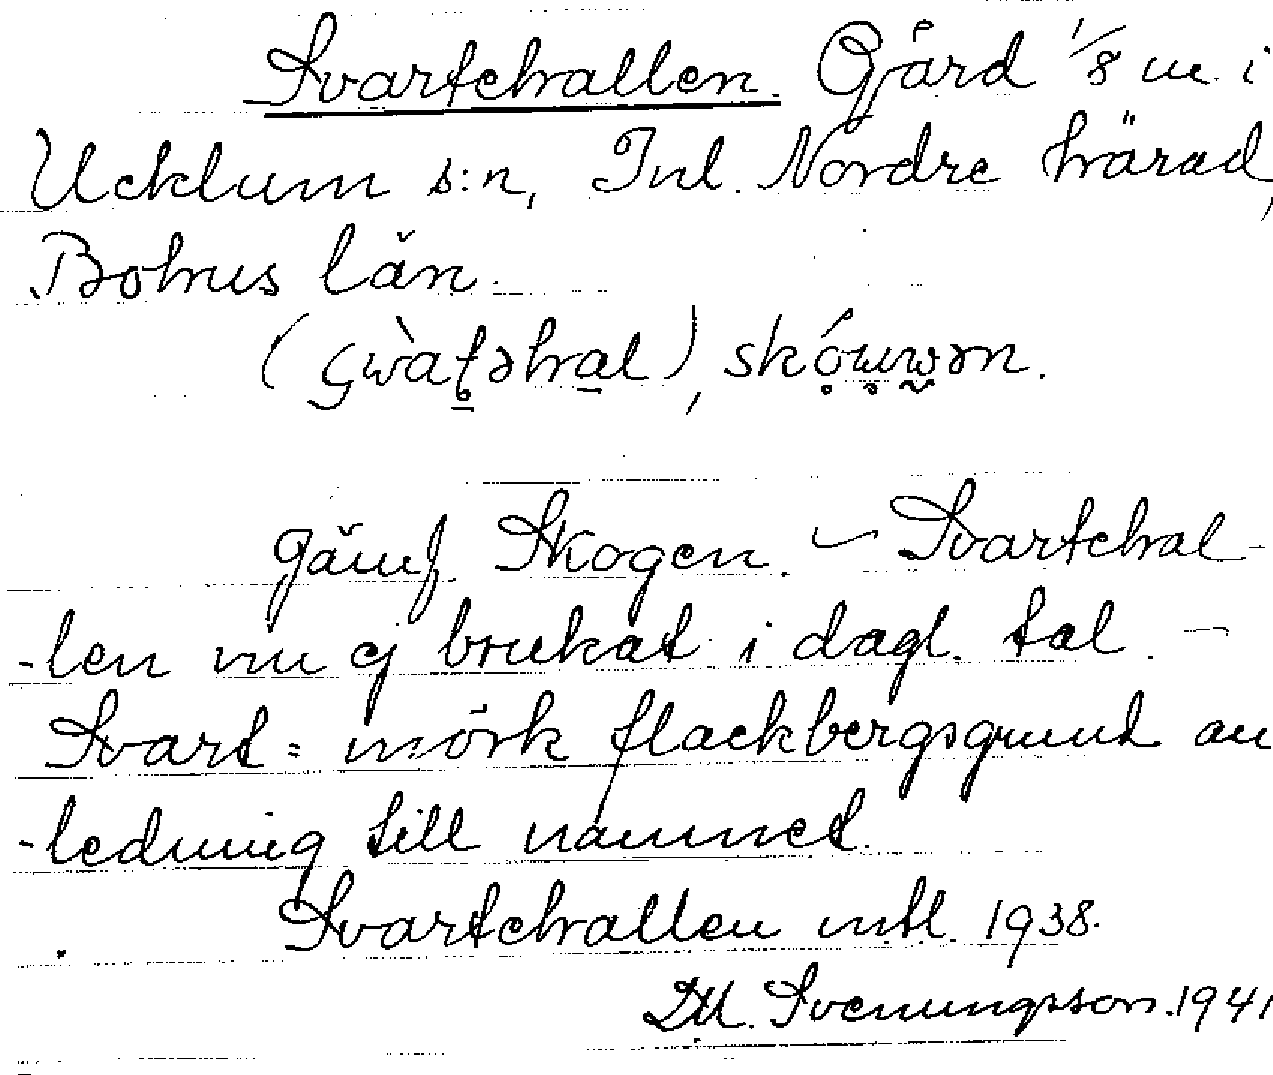 Svartehallen. Gård 1/8 m i
Ucklum s:n, Inl. Nordre härad,
Bohus län.
(sẁat̠əha̠l), skówwən.
Jämf. Skogen. – Svartehal-
-len nu ej brukat i dagl. tal. –
Svart = mörk flackbergsgrund an
-ledning till namnet.
Svartehallen mtl. 1938.
D.M. Svenungsson. 1941